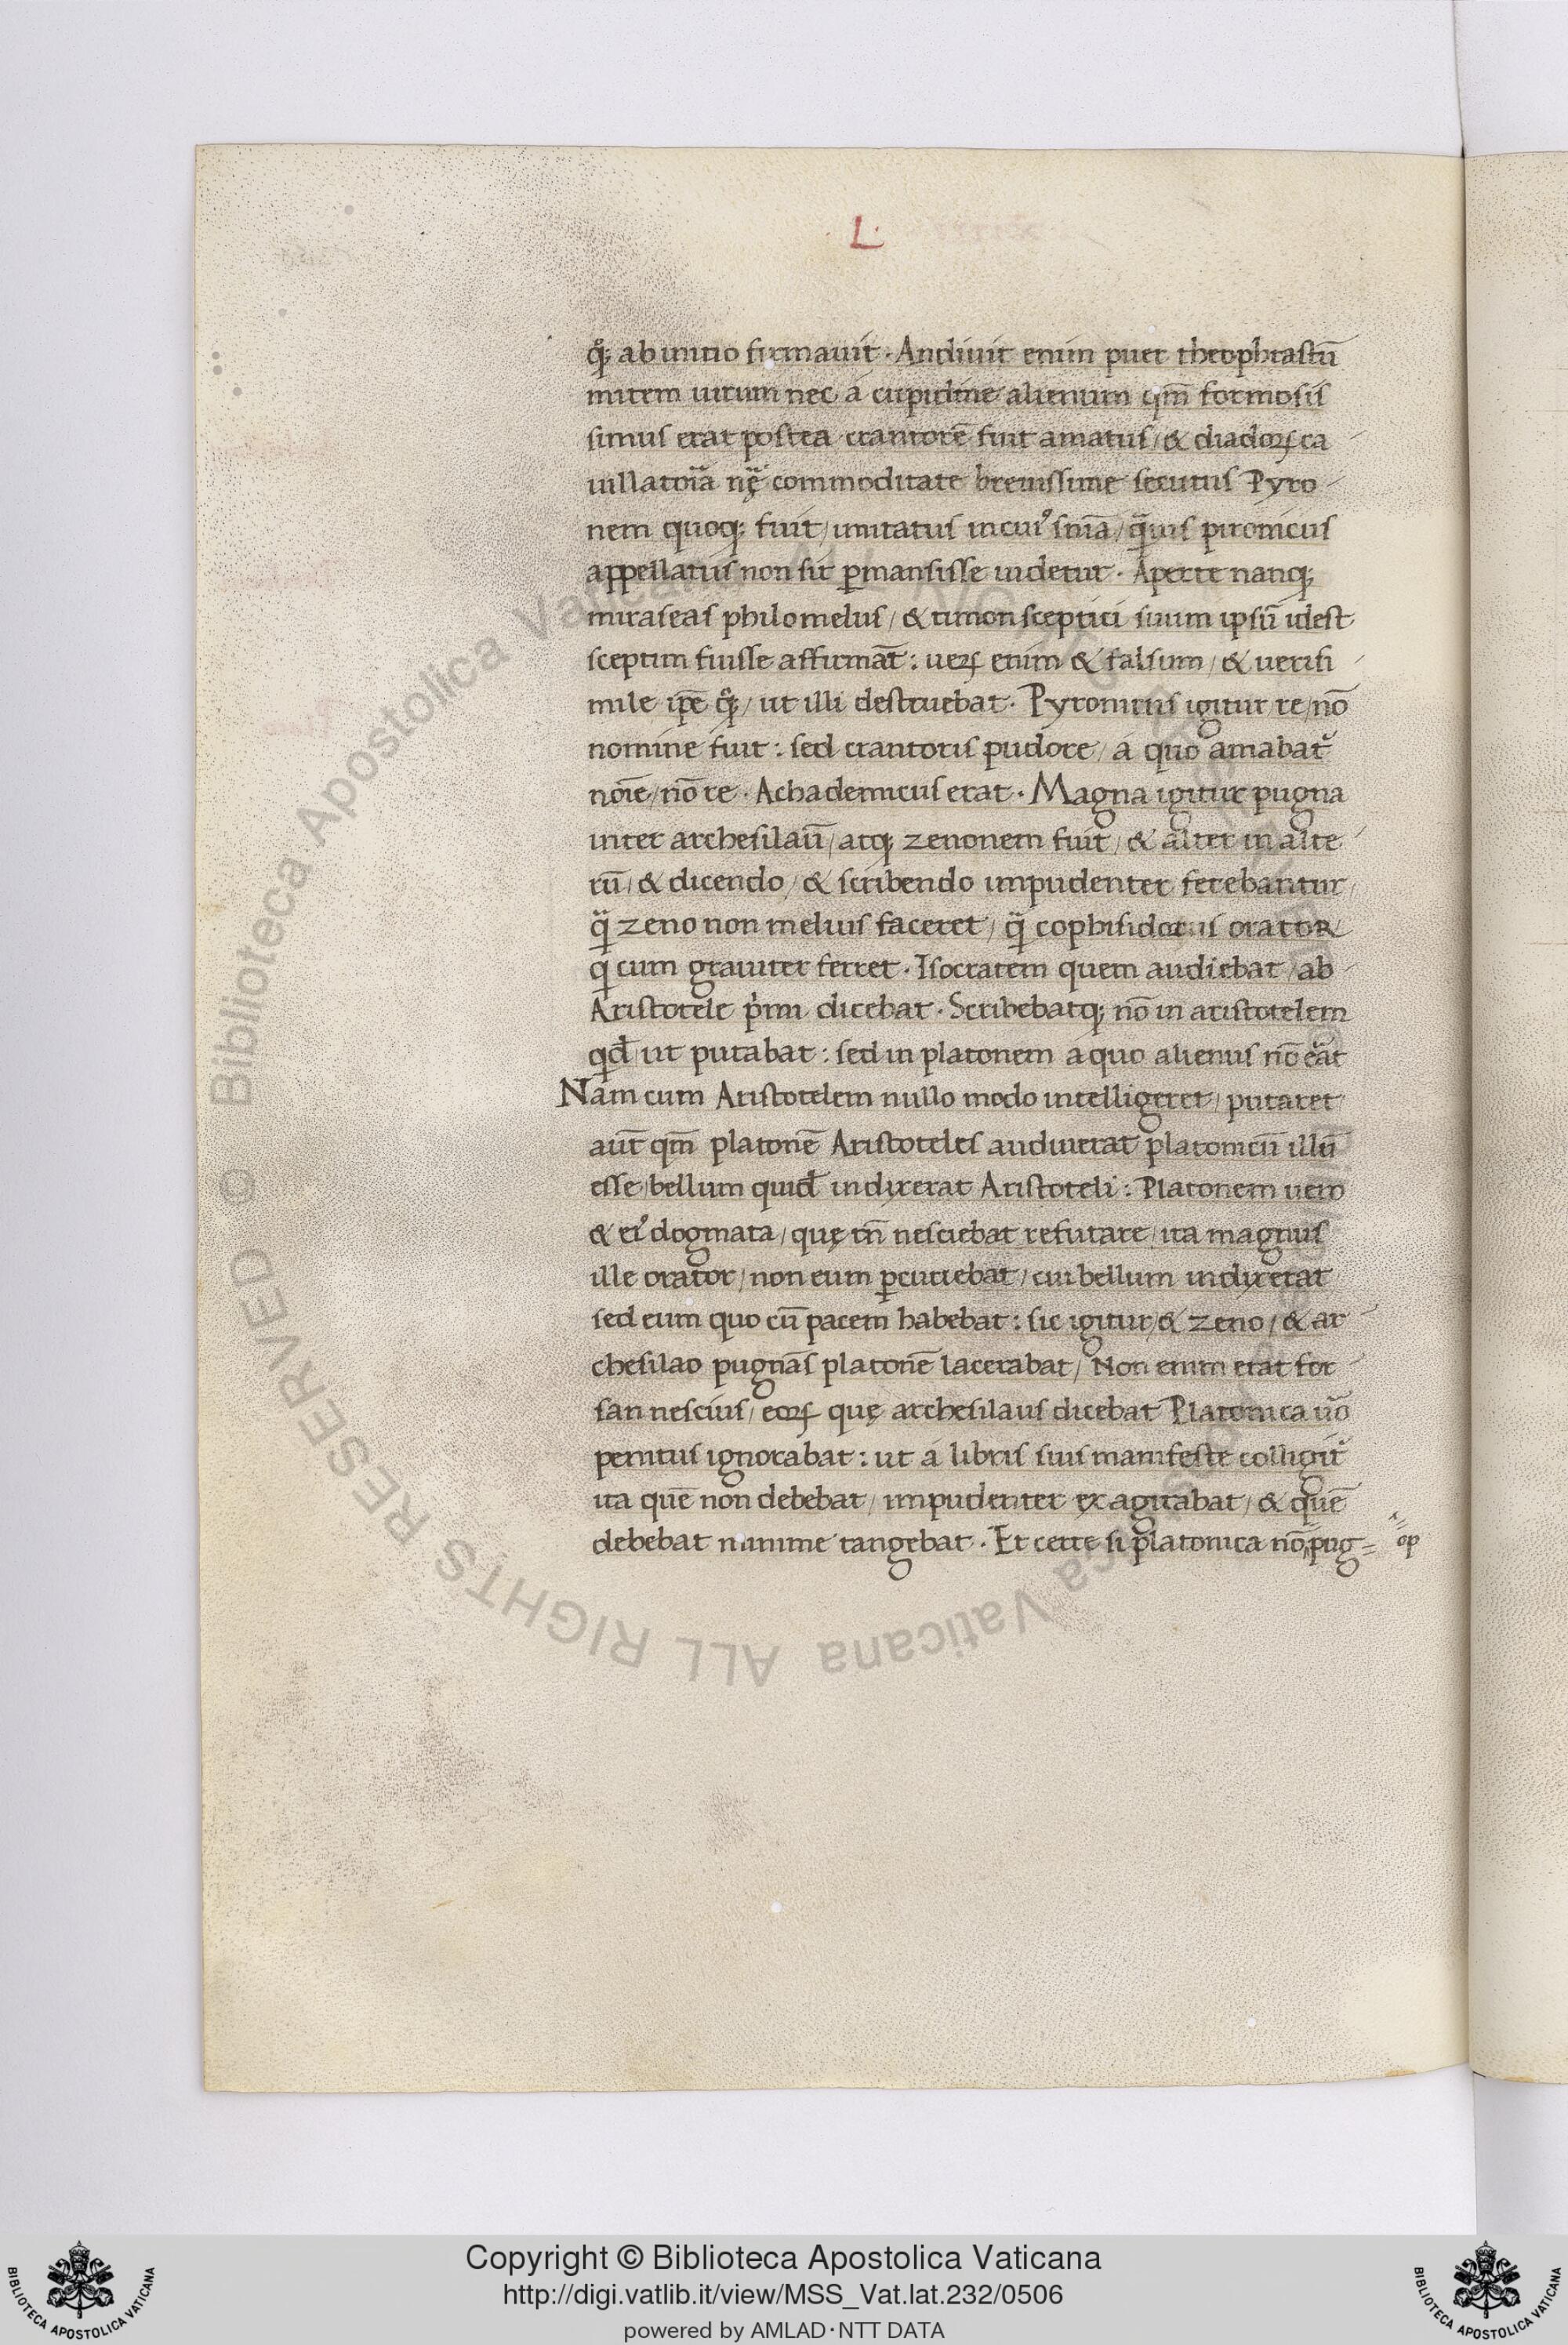 L.
qͦꝫ ab initio firmauit . Audiuit enim puer theophrastū
mitem uirum nec á cupidine alienum qm̄ formosis
simus erat postea crantorē fuit amatus / & diadoꝝ ca
uillatoria nęͣ commoditate breuissime secutus Pyro
nem quoqꝫ fuit / imitatus in cuiꝰ snīa / qͣ̄uis pironicus
appellatus non sit ꝑmansisse uidetur . Aperte nanqꝫ
miraseas philomelus / & timon sceptici suum ipsū idest
sceptim fuisse affirmāt : ueꝝ enim & falsum / & uerisi
mile ip̄e qͦꝫ / ut illi destruebat . Pyronius igitur re / nō
nomine fuit : sed crantoris pudore / á quo amabat᷑
noīe / nō re . Achademicus erat . Magna igitur pugna
inter archesilaū / atqꝫ zenonem fuit / & alter in alte
rū / & dicendo / & scribendo impudenter ferebantur /
qͣ̄ zeno non melius faceret / qͣ̄ cophisidorus orator
qͥ cum grauiter ferret . Isocratem quem audiebat / ab
Aristotele p̍mi dicebat . Scribebatqꝫ nō in aristotelem
qd̄ / ut putabat : sed in platonem a quo alienus nō eͣat
Nam cum Aristotelem nullo modo intelligeret / putaret
aūt qm̄ platonē Aristoteles audiuerat platonicū illū
esse / bellum quid̄ indixerat Aristoteli : Platonem uero
& eiꝰ dogmata / quę tn̄ nesciebat refutare / ita magnus
ille orator / non eum ꝑcutiebat / cui bellum indixerat
sed eum quo cū pacem habebat : sic igitur / & zeno / & ar
chesilao pugnās platonē lacerabat / Non enim erat for
san nescius / eoꝝ quę archesilaus dicebat Platonica ūo
penitus ignorabat : ut á libris suis manifeste colligit᷑
ita quē non debebat / impudenter exagitabat / & quē
debebat minime tangebat . Et certe si platonica nō pug= op
Copyright © Biblioteca Apostolica Vaticana
http://digi.vatlib.it/view/MSS_Vat.lat.232/0506
powered by AMLAD·NTT DATA
BIBLIOTECA APOSTOLICA VATICANA
BIBLIOTECA APOSTOLICA VATICANA
Biblioteca Apostolica Vaticana ALL RIGHTS RESERVED ©